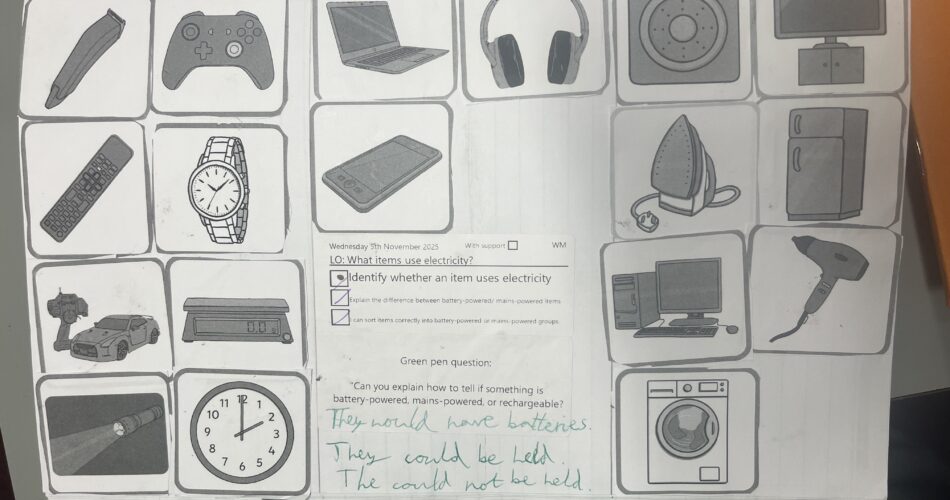 Wednesday 5th November 2025 With support WM
LO: What items use electricity?
Identify whether an item uses electricity
Explain the difference between battery-powered/ mains-powered items
I can sort items correctly into battery-powered or mains-powered groups.
Green pen question:
"Can you explain how to tell if something is
battery-powered, mains-powered, or rechargeable?
They would have batteries.
They could be held.
The could not be held.
12
11 1
10 2
9 3
8 4
7 5
6